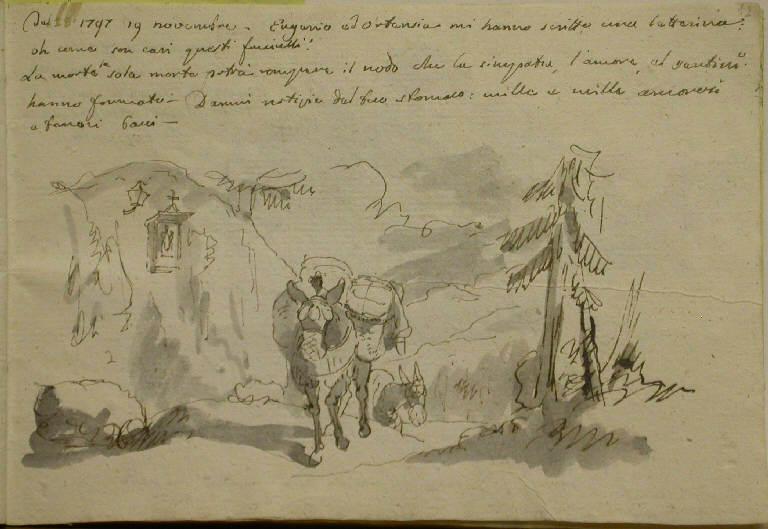 1797 19 novembre. Eugenio ed Ortensia mi hanno scritto una letterina:
oh come son cari questi
La morte la sola morte potrà rompere il nodo che la simpatia, l'amore, ed
hanno formato — Dammi notizie del tuo stomaco: mille e mille amorosi
e baci —